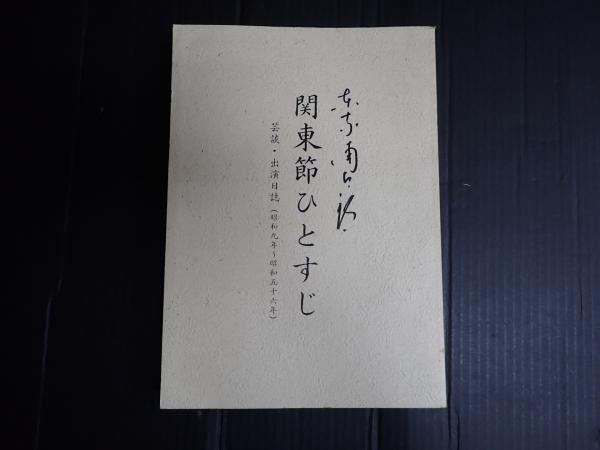 東家浦太郎
関東節ひとすじ
芸談・出演日誌（昭和九年～昭和五十六年）